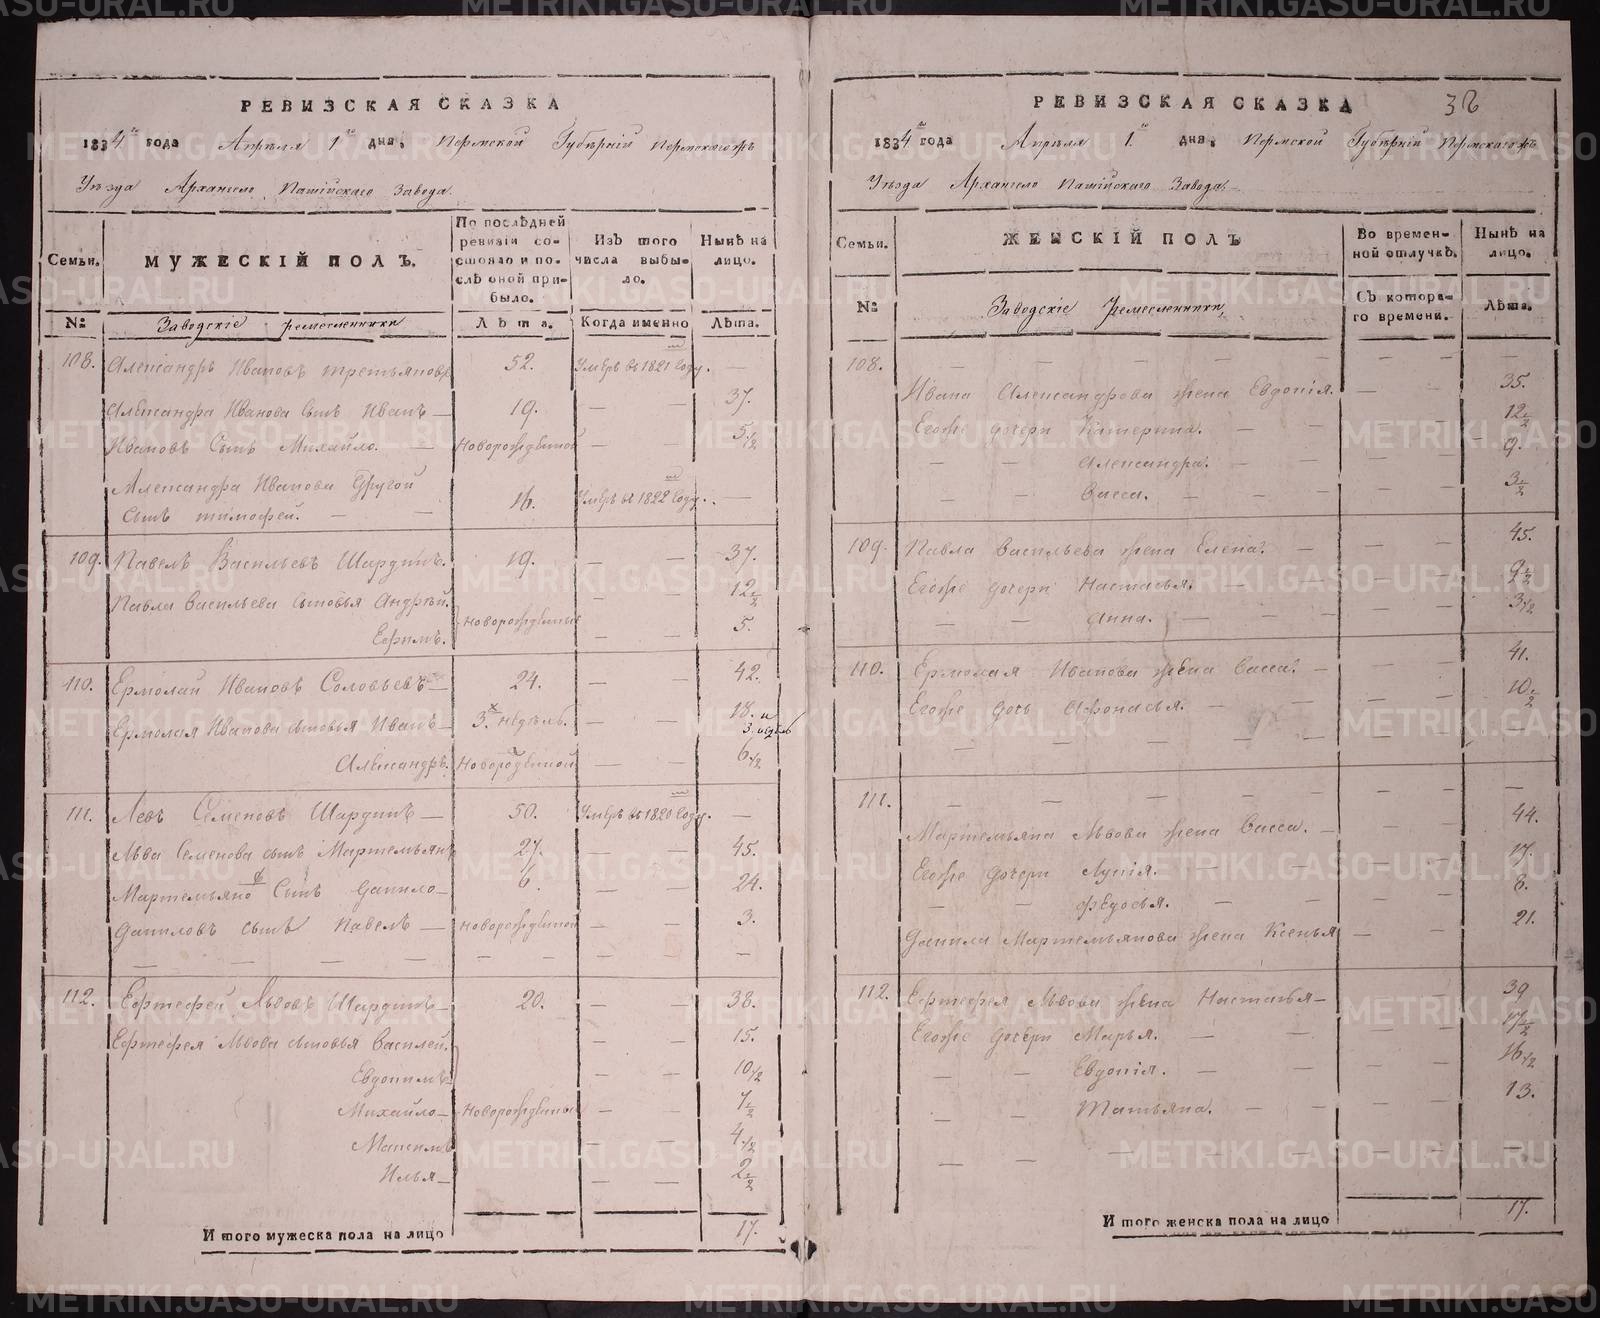 РЕВИЗСКАЯ СКАЗКА
1834 го года Апреля 1 го дня. Пермской Губерніи Пермскагожъ
Уѣзда Архангело Пашійскаго Завода.
Семьи. МУЖЕСКІЙ ПОЛЪ. По послѣдней ревизіи состояло и послѣ оной прибыло. Изъ того числа выбыло. Нынѣ на лицо.
№ Заводскіе ремесленники Лѣта. Когда именно Лѣта.
108. Александръ Ивановъ Третьяковъ 52. Умеръ въ 1821 году. —
Александра Иванова сынъ Иванъ — 19. — — 37.
Ивановъ Сынъ Михайло. — Новорожденной — — 5 1/2
Александра Иванова Другой
сынъ Тимофей. — — 16. Умеръ въ 1822 году. —
109. Павелъ Васильевъ Шардинъ. 19. — — 37.
Павла Васильева сыновья Андрей. — — 12 1/2
Новорожденные
Ефимъ. — — 5.
110. Ермолай Ивановъ Соловьевъ — 24. — — 42.
Ермолая Иванова сыновья Иванъ — 3. недѣль. — — 18. и 3. недѣль
Александръ. Новорожденной — — 6 1/2
111. Левъ Семеновъ Шардинъ — 50. Умеръ въ 1820 году. —
Льва Семенова сынъ Мартемьянъ 27. — — 45.
Мартемьяно Сынъ Данило — 6. — — 24.
Даниловъ сынъ Павелъ — Новорожденной — — 3.
— — — — — — — — —
112. Ефтефей Львовъ Шардинъ — 20. — — 38.
Ефтефея Львова сыновья Василей. — — 15.
Евдокимъ — — 10 1/2
Михайло — Новорожденные — — 7 1/2
Максимъ — — 4 1/2
Илья — — — 2 1/2
И того мужеска пола на лицо 17.
РЕВИЗСКАЯ СКАЗКА 38
1834 го года Апреля 1 го дня. Пермской Губерніи Пермскагожъ
Уѣзда Архангело Пашійскаго Завода. —
Семьи. ЖЕНСКІЙ ПОЛЪ Во временной отлучкѣ. Нынѣ на лицо.
№ Заводскіе Ремесленники, Съ котораго времени. Лѣта.
108. — — — — — — — —
Ивана Александрова жена Евдокія. — 35.
Егоже дочери Катерина. — — — 12 1/2
— — Александра. — — — 9.
— — Васса. — — — — 3 1/2
109. Павла Васильева жена Елена. — — — 45.
Егоже дочери Настасья. — — — — 9 1/2
— — Анна. — — — — 3 1/2
110. Ермолая Иванова жена Васса. — — — 41.
Егоже дочь Афонасья. — — — — 10 1/2
— — — — — — — —
111. — — — — — — — —
Мартемьяна Львова жена Васса. — — — 44.
Егоже дочери Лукія. — — — — 17.
— — Федосья. — — — — 8.
Данила Мартемьянова жена Ксенья — — 21.
112. Ефтефея Львова жена Настасья — — — 39
Егоже дочери Марья. — — — — 17 1/2
— — Евдокія. — — — — 16 1/2
— — Татьяна. — — — — 13.
— — — — — — — —
И того женска пола на лицо 17.
METRIKI.GASO-URAL.RU